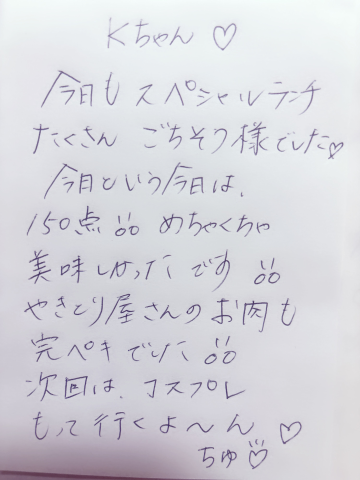 Kちゃん ♡
今日も スペシャルランチ
たくさん ごちそう様でした♡
今日という今日は、
150点!! めちゃくちゃ
美味しかったです!!
やきとり屋さんのお肉も
完ペキでした!!
次回は、コスプレ
もって行くよ〜ん ♡
ちゅ♡